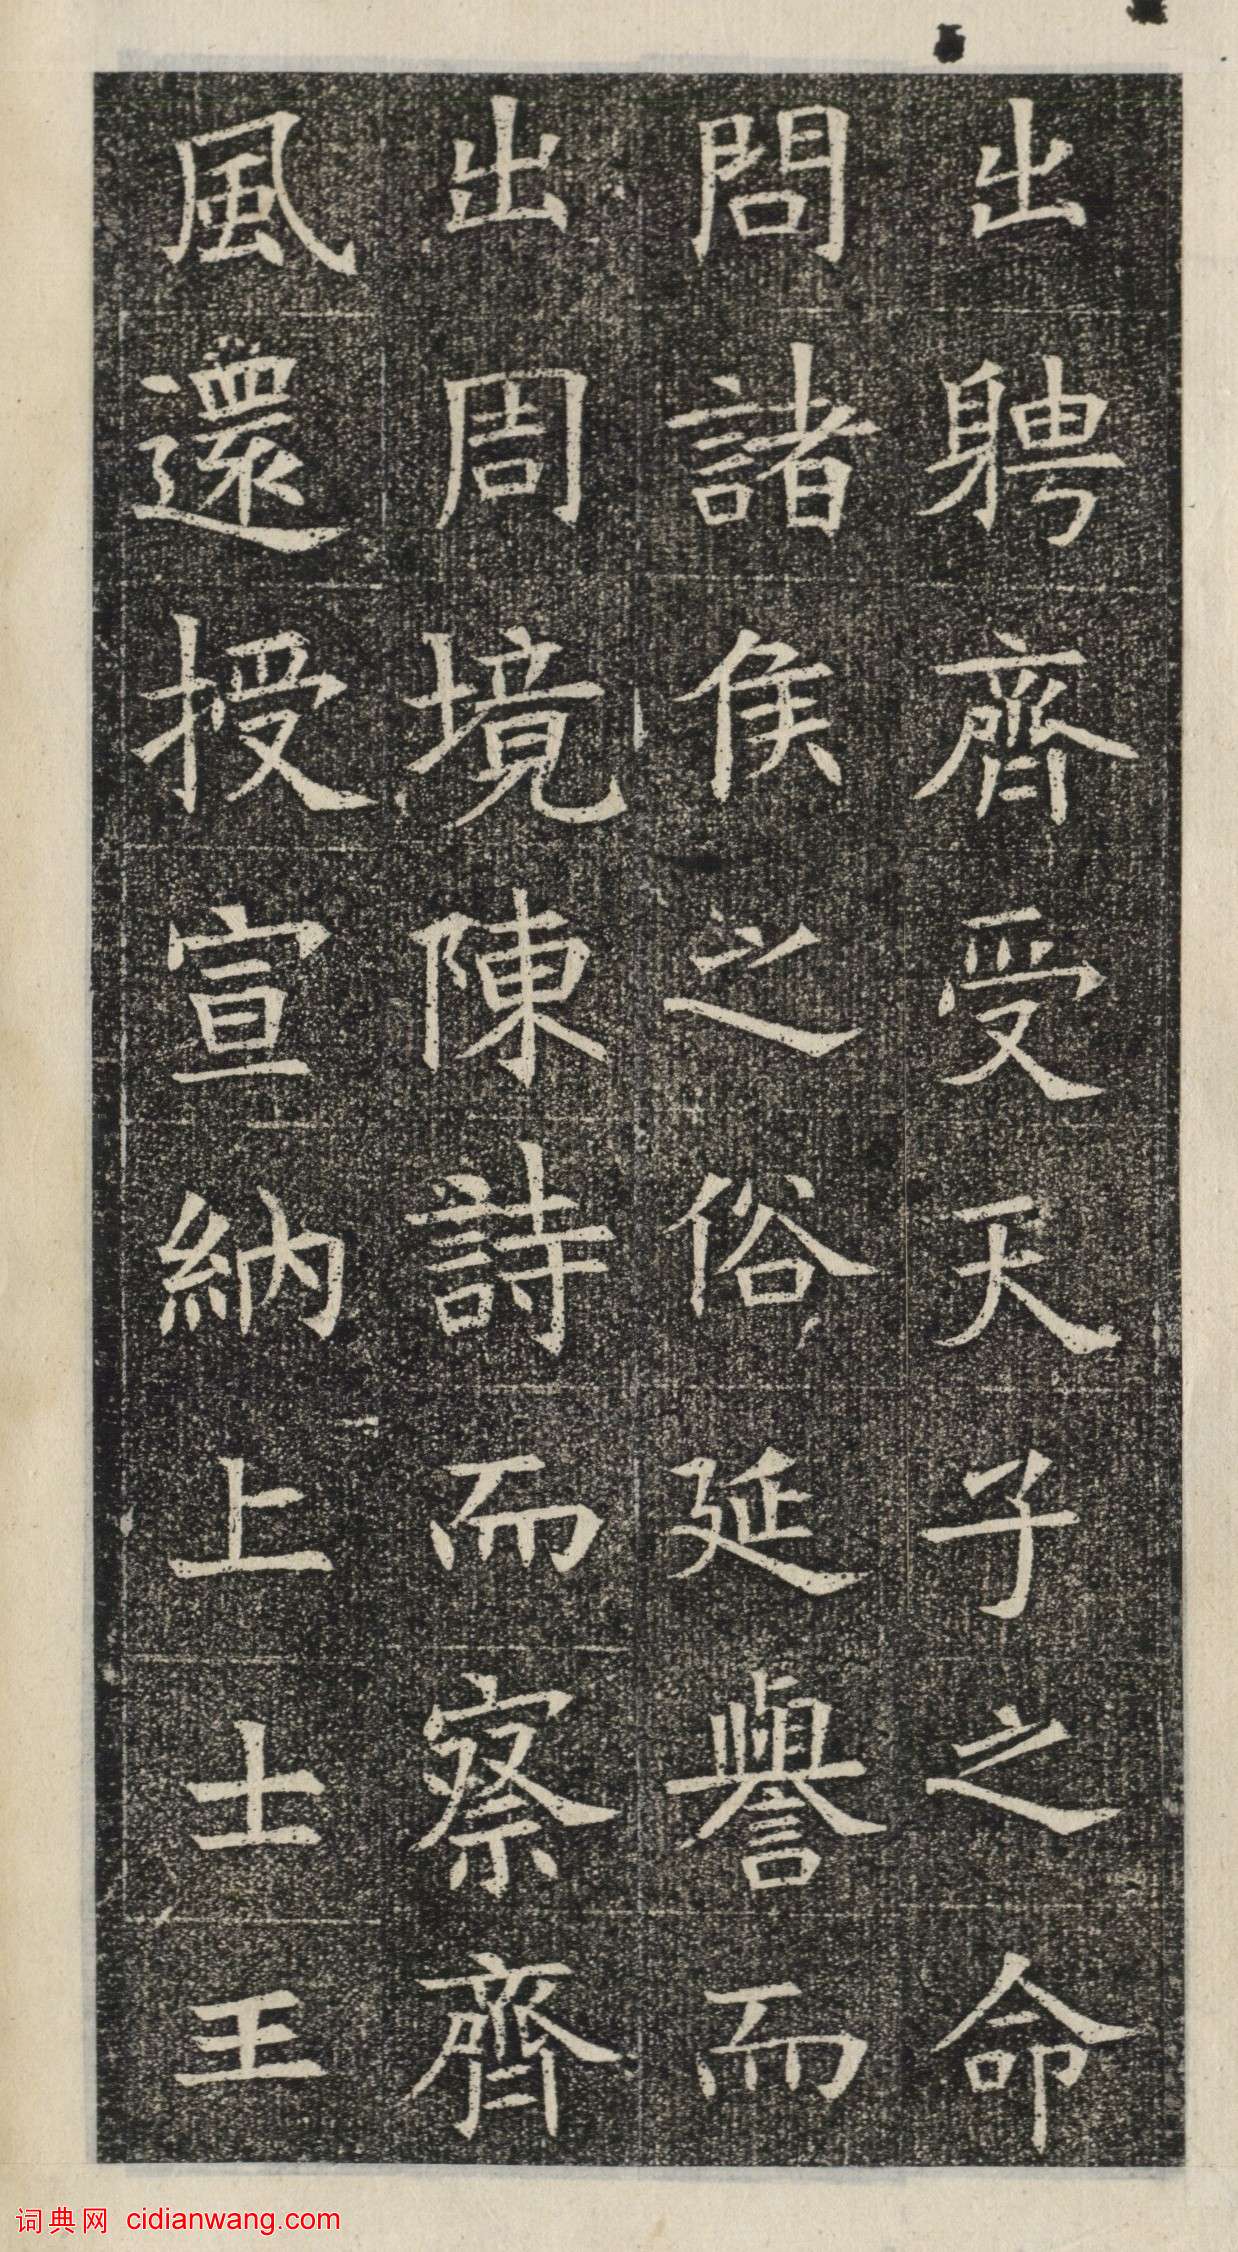 出聘齊受天子之命
問諸侯之俗延譽而
出周境陳詩而察齊
風還授宣納上士王
词典网 cidianwang.com